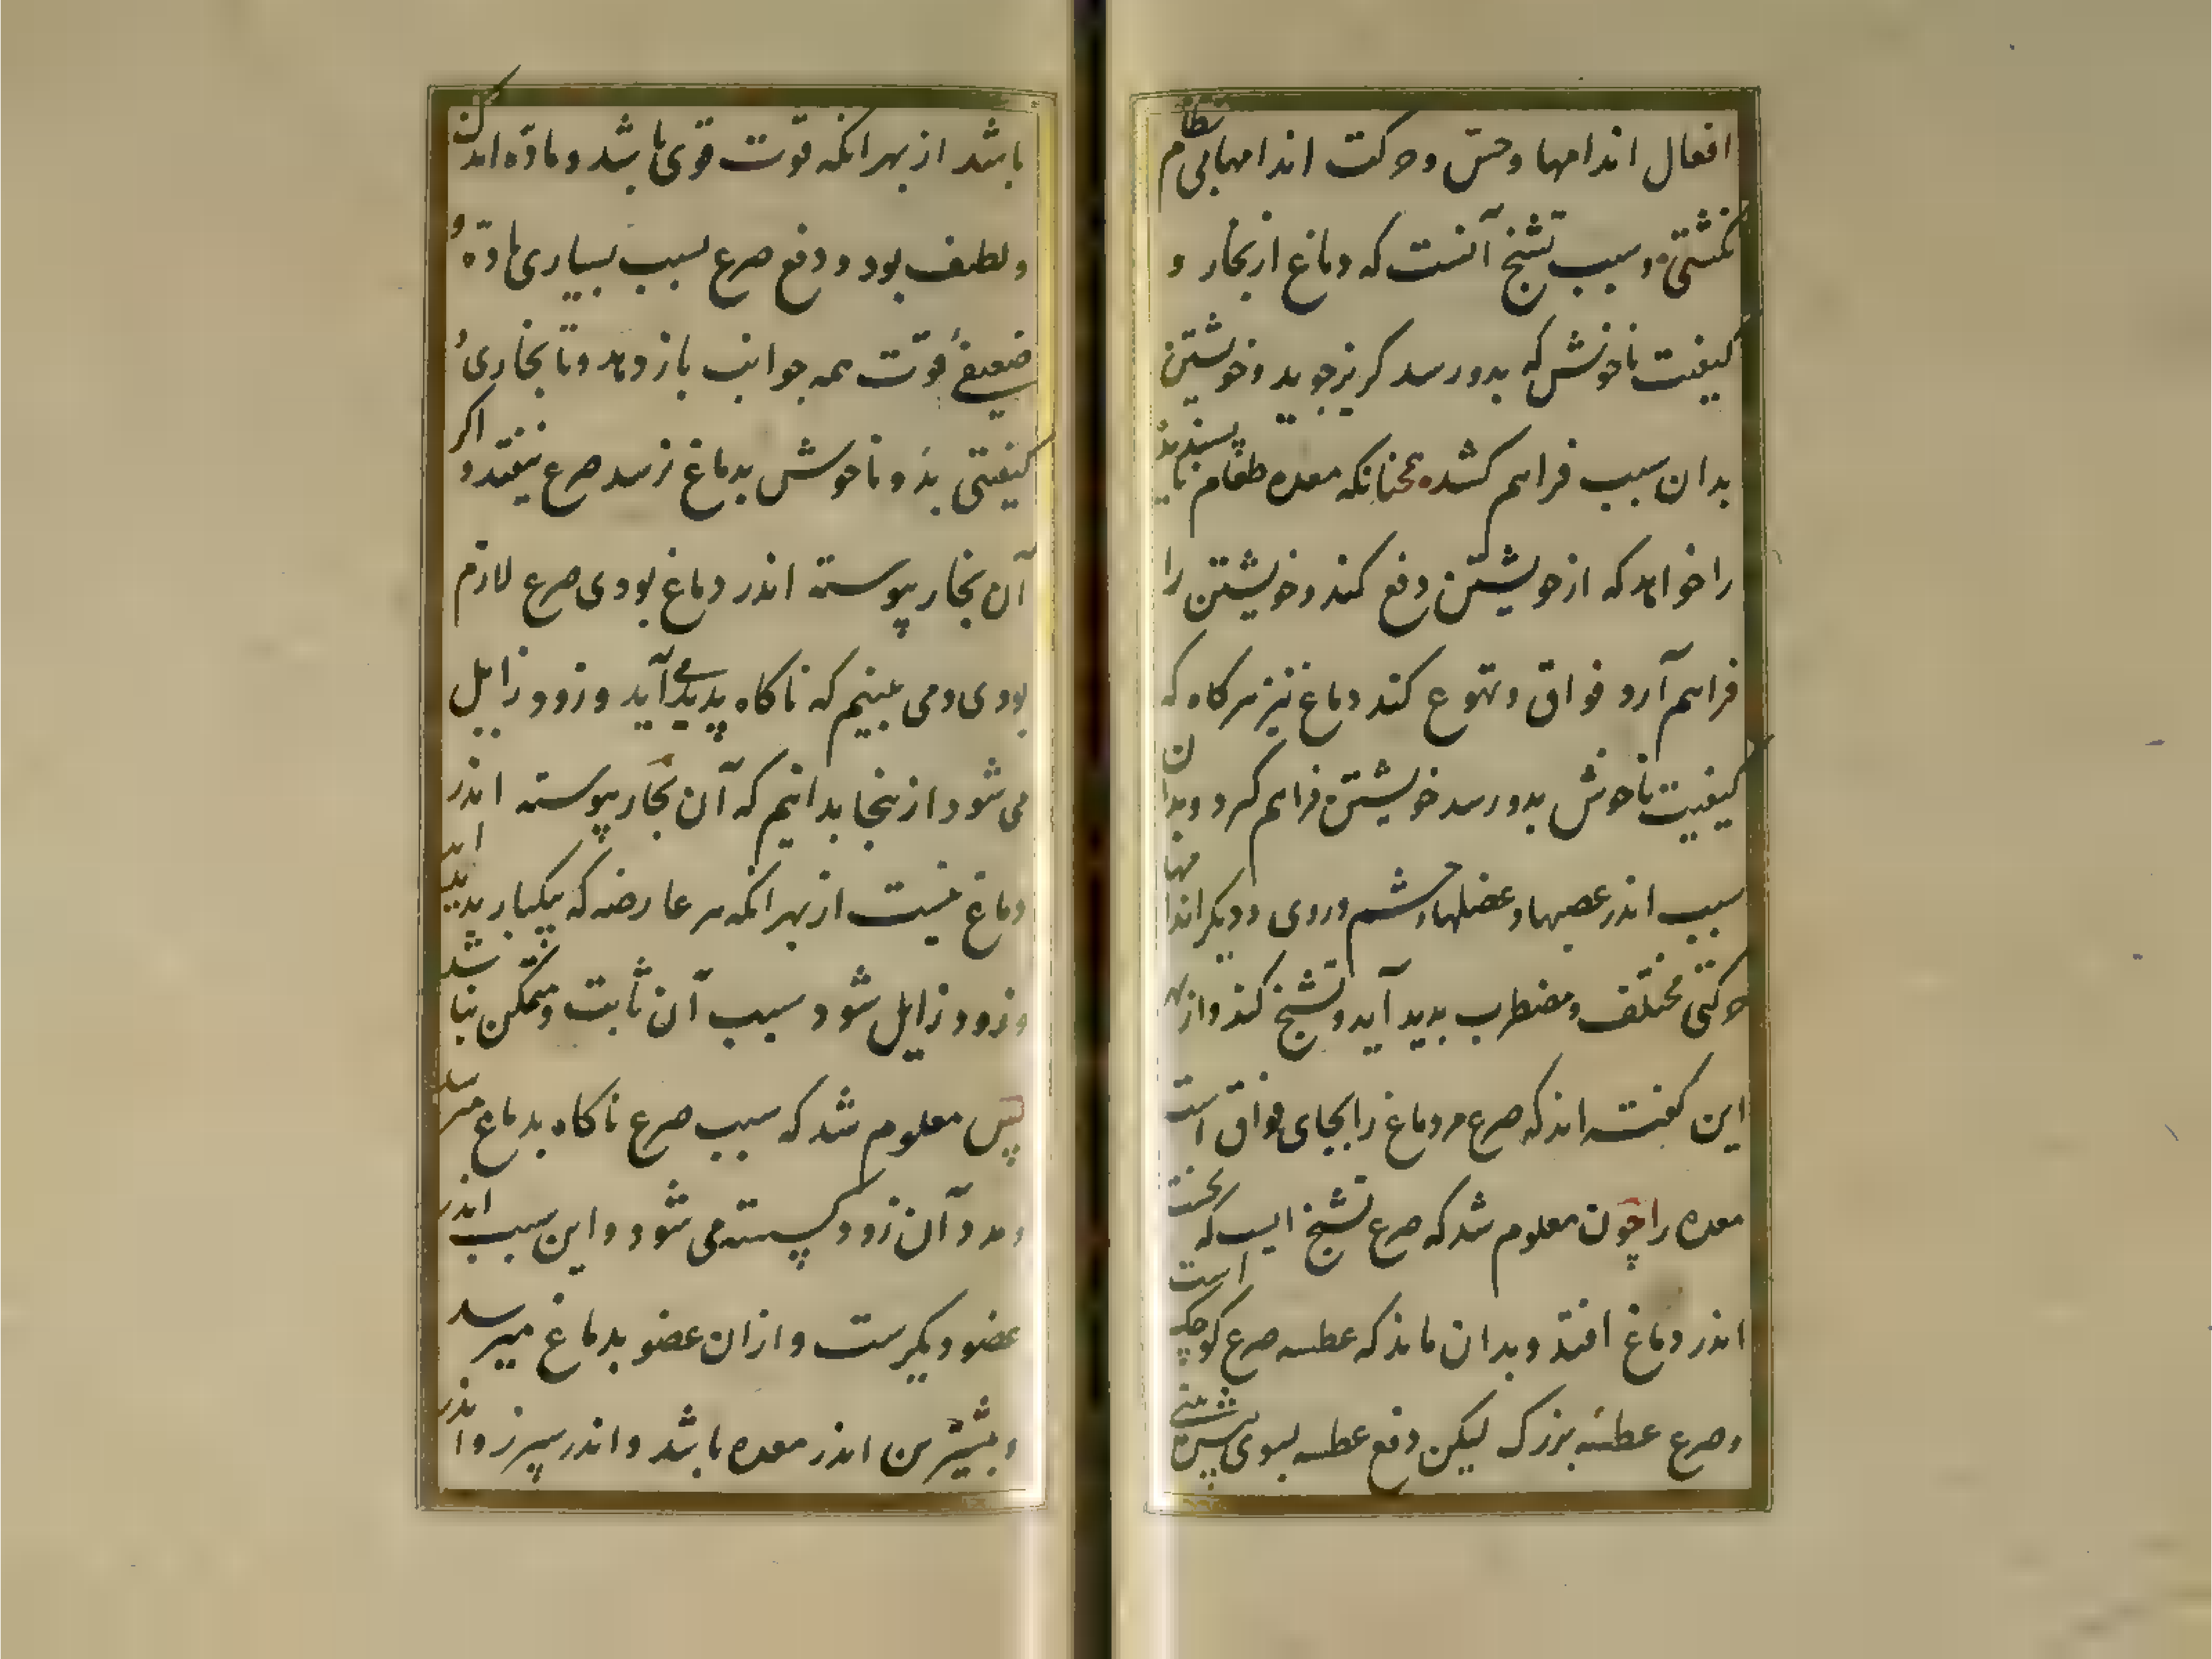 افعال اندامها و حسّ و حرکت اندامها بی نظام
نکشتی و سبب تشنّج آنست که دماغ از بخار و
کیفیت ناخوش که بدو رسد کریز جوید و خویشتن
بدان سبب فراهم کشد همچنانکه معده طعام ناپسندیده
را خواهد که از خویشتن دفع کند و خویشتن را
فراهم آرد فواق و تهوع کند دماغ نیز هرکاه که
کیفیت ناخوش بدو رسد خویشتن فراهم کرد و بدان
سبب اندر عصبها و عضلها و چشم و روی و دیکر اندامها
حرکتی مختلف و مضطرب بدید آید و تشنّج کند و از بهر
این کفته اند که صرع مر دماغ را بجای فواق است
معده را چون معلوم شد که صرع تشنّج ایست که نخست
اندر دماغ افتد و بدان ماند که عطسه صرع کوچک است
و صرع عطسه بزرک لیکن دفع عطسه بسوی پیش
باشد از بهر انکه قوّت قوی باشد و مادّه اندک
و لطیف بود و دفع صرع بسبب بسیاری مادّه و
ضعیفی قوّت بهمه جوانب باز دهد و تا بخاری و
کیفیتی بد و ناخوش بدماغ نرسد صرع نیفتد و اکر
آن بخار پیوسته اندر دماغ بودی صرع لازم
بودی و می بینیم که ناکاه پدید می آید و زود زایل
می شود از ینجا بدانیم که آن بخار پیوسته اندر
دماغ نیست از بهر انکه هر عارضه که بیکبار پدید آید
و زود زایل شود سبب آن ثابت و متمکن نباشد
پس معلوم شد که سبب صرع ناکاه بدماغ میرسد
و مدد آن زود کسسته می شود و این سبب اندر
عضو دیکرست و از ان عضو بدماغ میرسد
و بیشترین اندر معده باشد و اندر سپرز و اندر